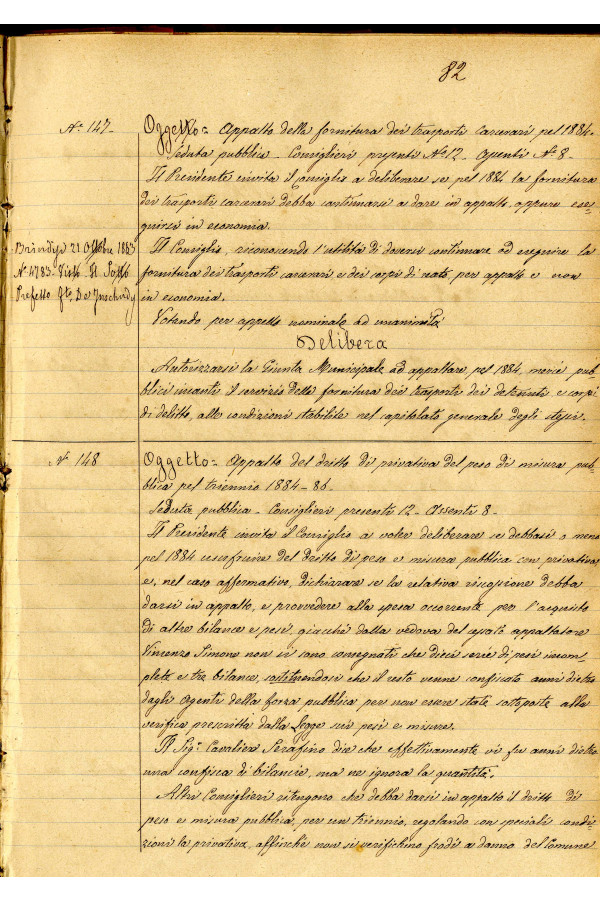 82
N.º 147.
Oggetto = Appalto della fornitura dei trasporti carcerari pel 1884.
Seduta pubblica - Consiglieri presenti N.º 12 - Assenti N.º 8 -
Il Presidente invita il Consiglio a deliberare se pel 1884 la fornitura
dei trasporti carcerari debba continuarsi a dare in appalto, oppure ese-
guirsi in economia.
Brindisi 21 Ottobre 1883
N.º 4783. Visto. Il Sotto
Prefetto
Il Consiglio, riconoscendo l'utilità di doversi continuare ad eseguire la
fornitura dei trasporti carcerari e dei corpi di reato per appalto e non
in economia.
Votando per appello nominale ad unanimità
Delibera
Autorizzarsi la Giunta Municipale ad appaltare, pel 1884, mercè pub-
blici incanti il servizio della fornitura dei trasporti dei detenuti e corpi
di delitto, alle condizioni stabilite nel capitolato generale degli stessi.
N.º 148
Oggetto = Appalto del dritto di privativa del peso di misura pub-
blica pel triennio 1884-86.
Seduta pubblica - Consiglieri presenti 12 - Assenti 8 -
Il Presidente invita il Consiglio a voler deliberare se debbasi o meno
pel 1884 usufruire del dritto di peso e misura pubblica con privativa,
e, nel caso affermativo, dichiarare se la relativa riscossione debba
darsi in appalto, e provvedere alla spesa occorrente per l'acquisto
di altre bilance e pesi, giacchè dalla vedova del cessato appaltatore
Vincenzo Simone non si sono consegnati che dieci serie di pesi incom-
plete e tre bilance, sostenendosi che il resto venne confiscato anni dietro
dagli Agenti della forza pubblica per non essere state sottoposte alla
verifica prescritta dalla Legge sui pesi e misure.
Il Sig.r Cavaliere Serafino dice che effettivamente vi fu anni dietro
una confisca di bilancie, ma ne ignora la quantità.
Altri Consiglieri ritengono che debba darsi in appalto il dritto di
peso e misura pubblica, per un triennio, regolando con speciali condi-
zioni la privativa, affinchè non si verifichino frodi a danno del Comune